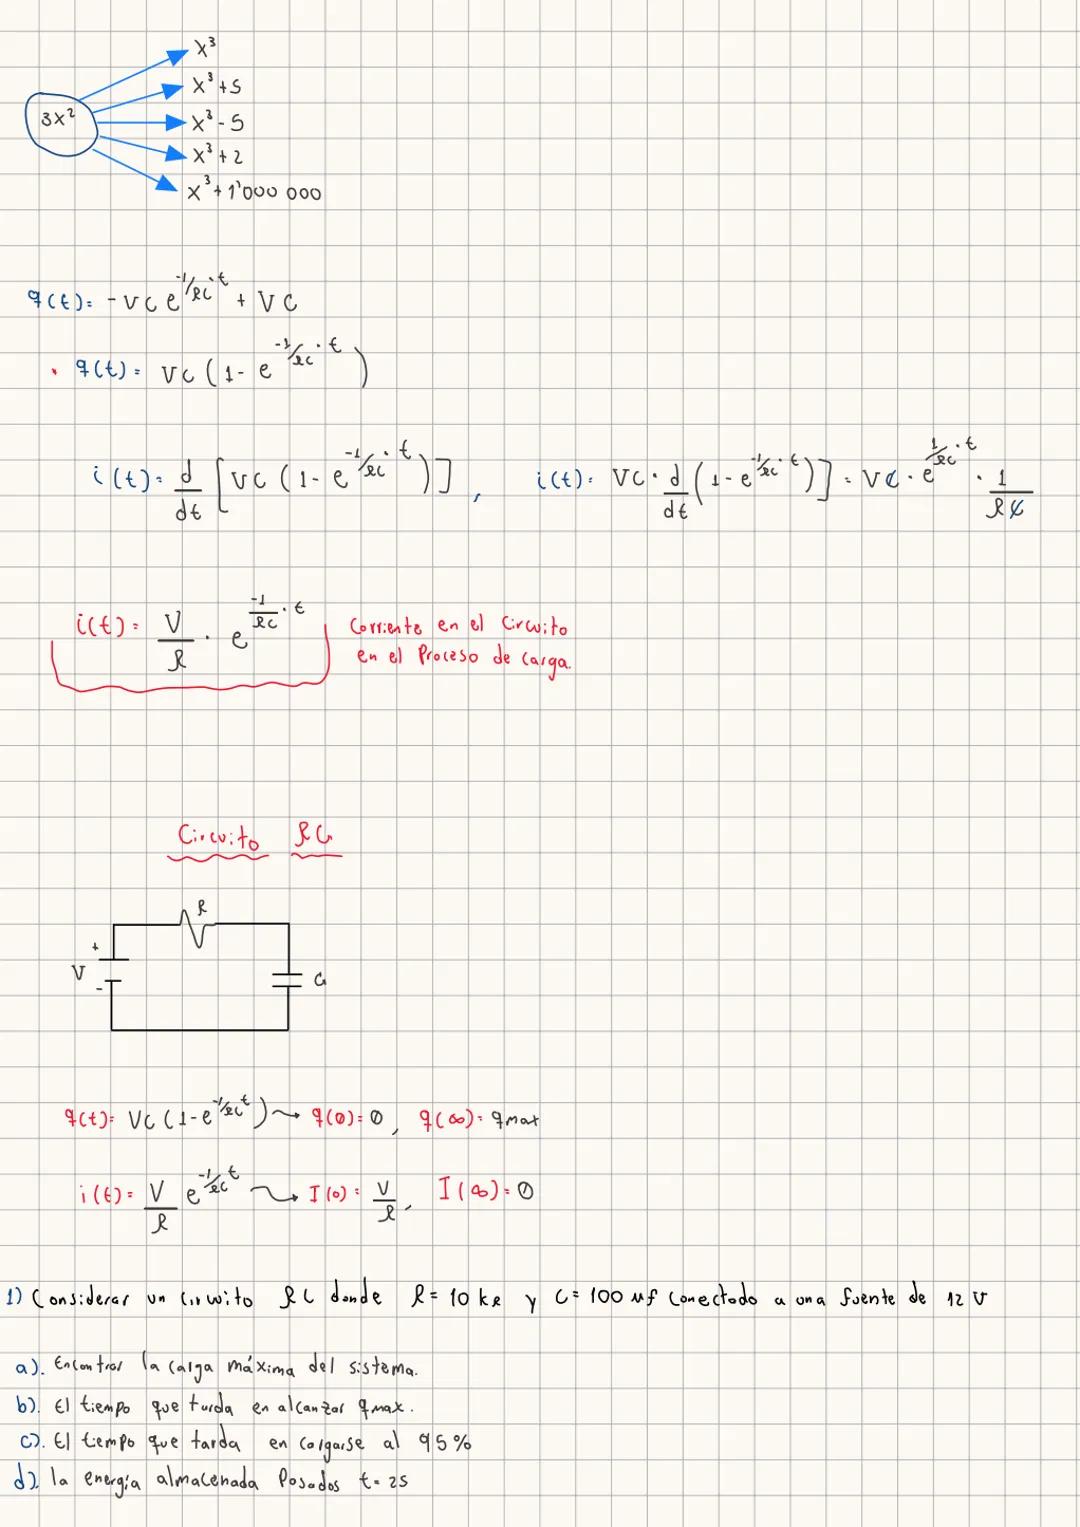 x³
x³+5
3x²
x³-5
x³+2
x³+1'000 000
q(t)= -VC e^(-1/RC · t) + VC
q(t)= VC (1- e^(-1/RC · t))
i(t)= d/dt [VC (1- e^(-1/RC · t))], i(t)= VC · d/dt (1- e^(-1/RC · t))] = VC · e^(1/RC · t) · 1/RC
i(t)= V/R · e^(-1/RC · t) Corriente en el Circuito
en el Proceso de carga.
Circuito RC
R
+
V
-
C
q(t)= VC (1-e^(-1/RC t)) → q(0)=0, q(∞)=qmax
i(t)= V/R e^(-1/RC t) → I(0)= V/R, I(∞)=0
1) Considerar un Circuito RC donde R= 10 kΩ y C= 100 uf Conectado a una fuente de 12 V
a). Encontrar la carga máxima del sistema.
b). El tiempo que turda en alcanzar qmax.
c). El tiempo que tarda en cargarse al 95%
d). la energía almacenada Pasados t=2s